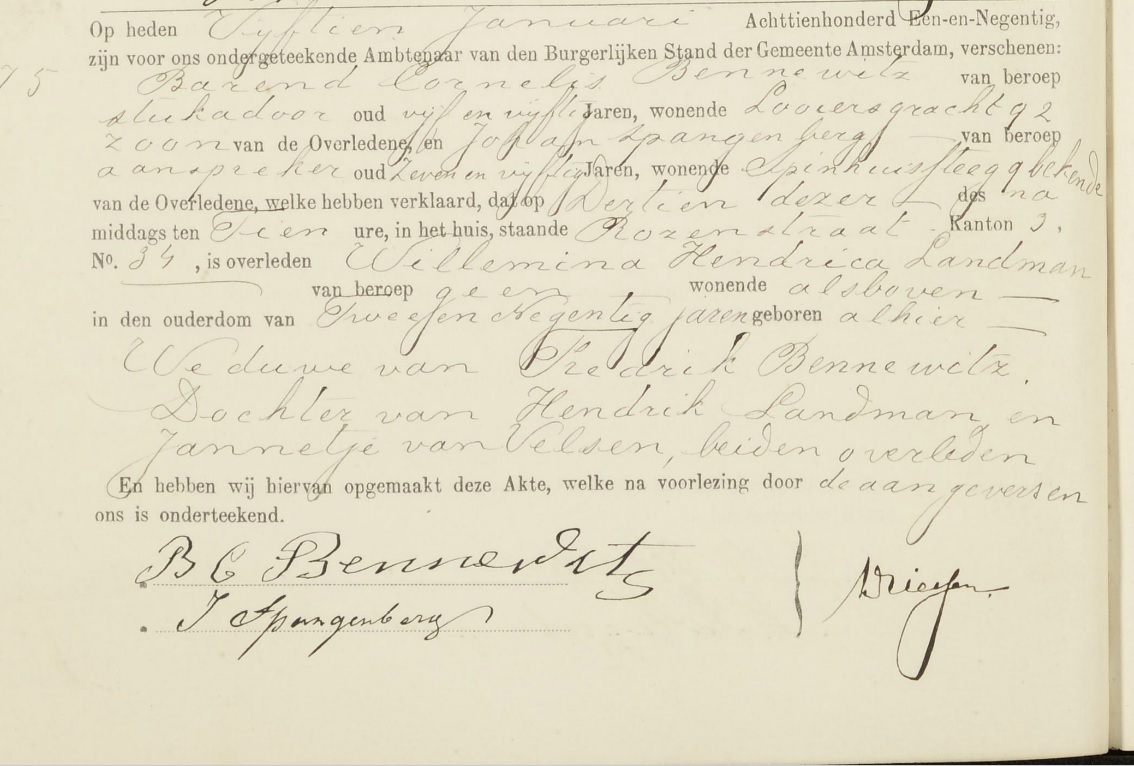 Op heden Vyftien Januari Achttienhonderd Een-en-Negentig,
zijn voor ons ondergeteekende Ambtenaar van den Burgerlijken Stand der Gemeente Amsterdam, verschenen:
75 Barend Cornelis Bennewitz van beroep
stukadoor oud vijf en vyftig Jaren, wonende Looiersgracht 92
zoon van de Overledene, en Johan Spangenberg van beroep
aanspreker oud Zeven en vyftig Jaren, wonende Spinhuissteeg 9 bekende
van de Overledene, welke hebben verklaard, dat op Dertien dezer des na
middags ten Tien ure, in het huis, staande Rozenstraat Kanton 3,
No. 34, is overleden Willemina Hendrica Landman
van beroep geen wonende alsboven
in den ouderdom van Twee en Negentig jaren geboren alhier
Weduwe van Fredrik Bennewitz.
Dochter van Hendrik Landman en
Jannetje van Velsen, beiden overleden
En hebben wij hiervan opgemaakt deze Akte, welke na voorlezing door de aangevers en
ons is onderteekend.
B C Bennewits
J Spangenberg